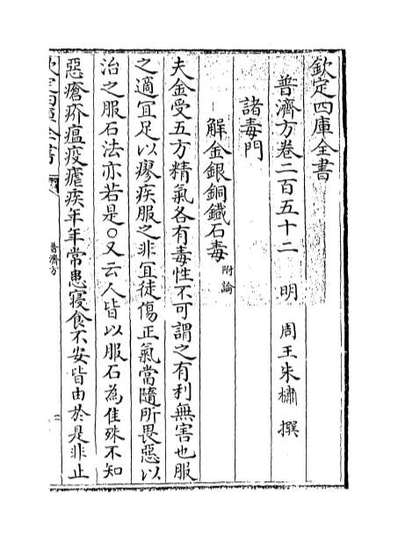 欽定四庫全書
普濟方卷二百五十二　明　周王朱橚　撰
諸毒門
解金銀銅鐵石毒附論
夫金受五方精氣各有毒性不可謂之有利無害也服
之適宜足以瘳疾服之非宜徒傷正氣當隨所畏惡以
治之服石法亦若是〇又云人皆以服石為佳殊不知
惡瘡疥瘟疫瘧疾年年常患寢食不安皆由於是非止
普濟方